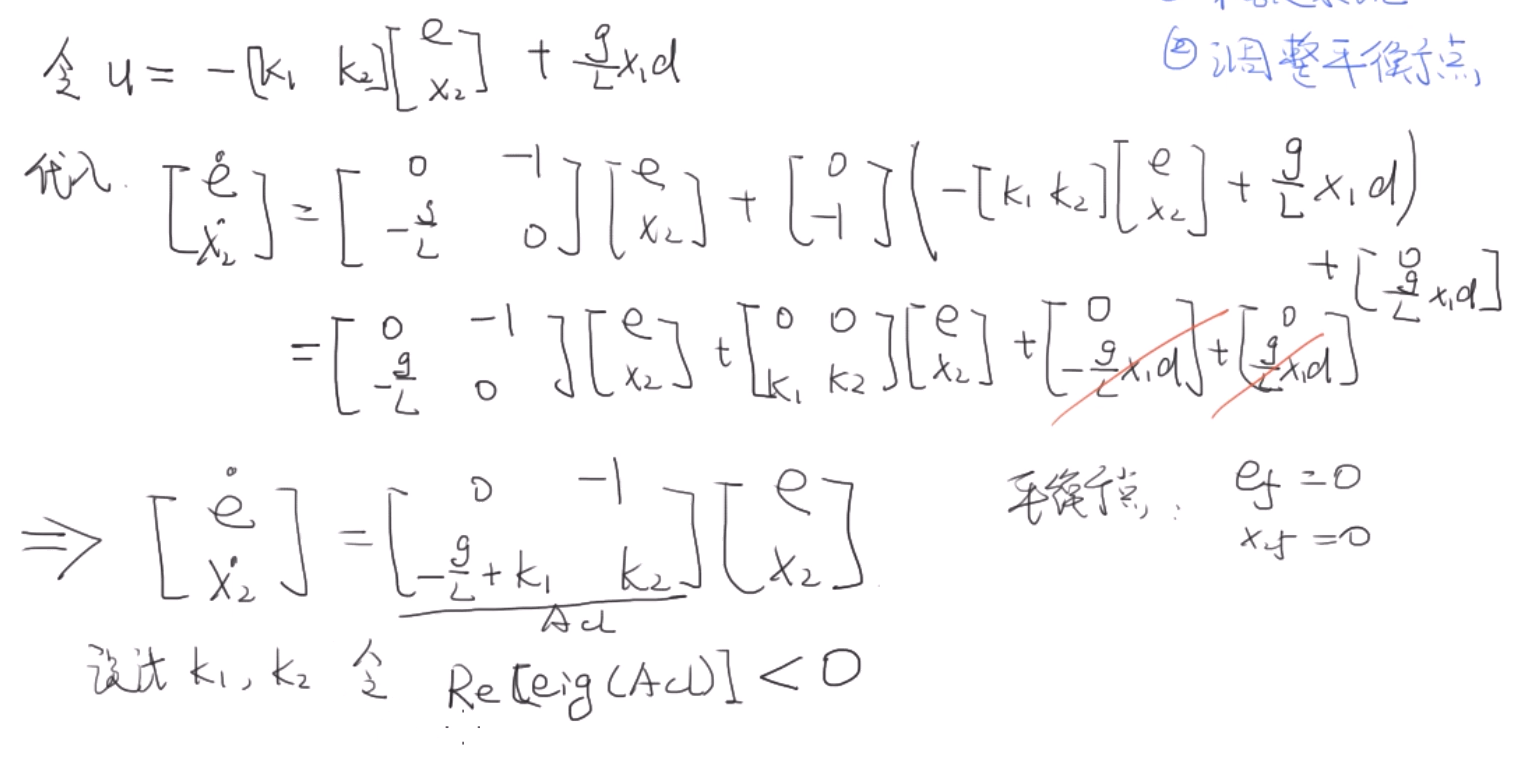 ② 调整平衡点
令 u = -[k₁ k₂][e; x₂] + g/L x₁d
代入 [ė; ẋ₂] = [0 -1; -g/L 0][e; x₂] + [0; -1](-[k₁ k₂][e; x₂] + g/L x₁d) + [0; g/L x₁d]
= [0 -1; -g/L 0][e; x₂] + [0 0; k₁ k₂][e; x₂] + [0; -g/L x₁d] + [0; g/L x₁d]
⇒ [ė; ẋ₂] = [0 -1; -g/L + k₁ k₂][e; x₂]
Acl
平衡点: e_f = 0
x₂f = 0
设计 k₁, k₂ 令 Re[eig(Acl)] < 0